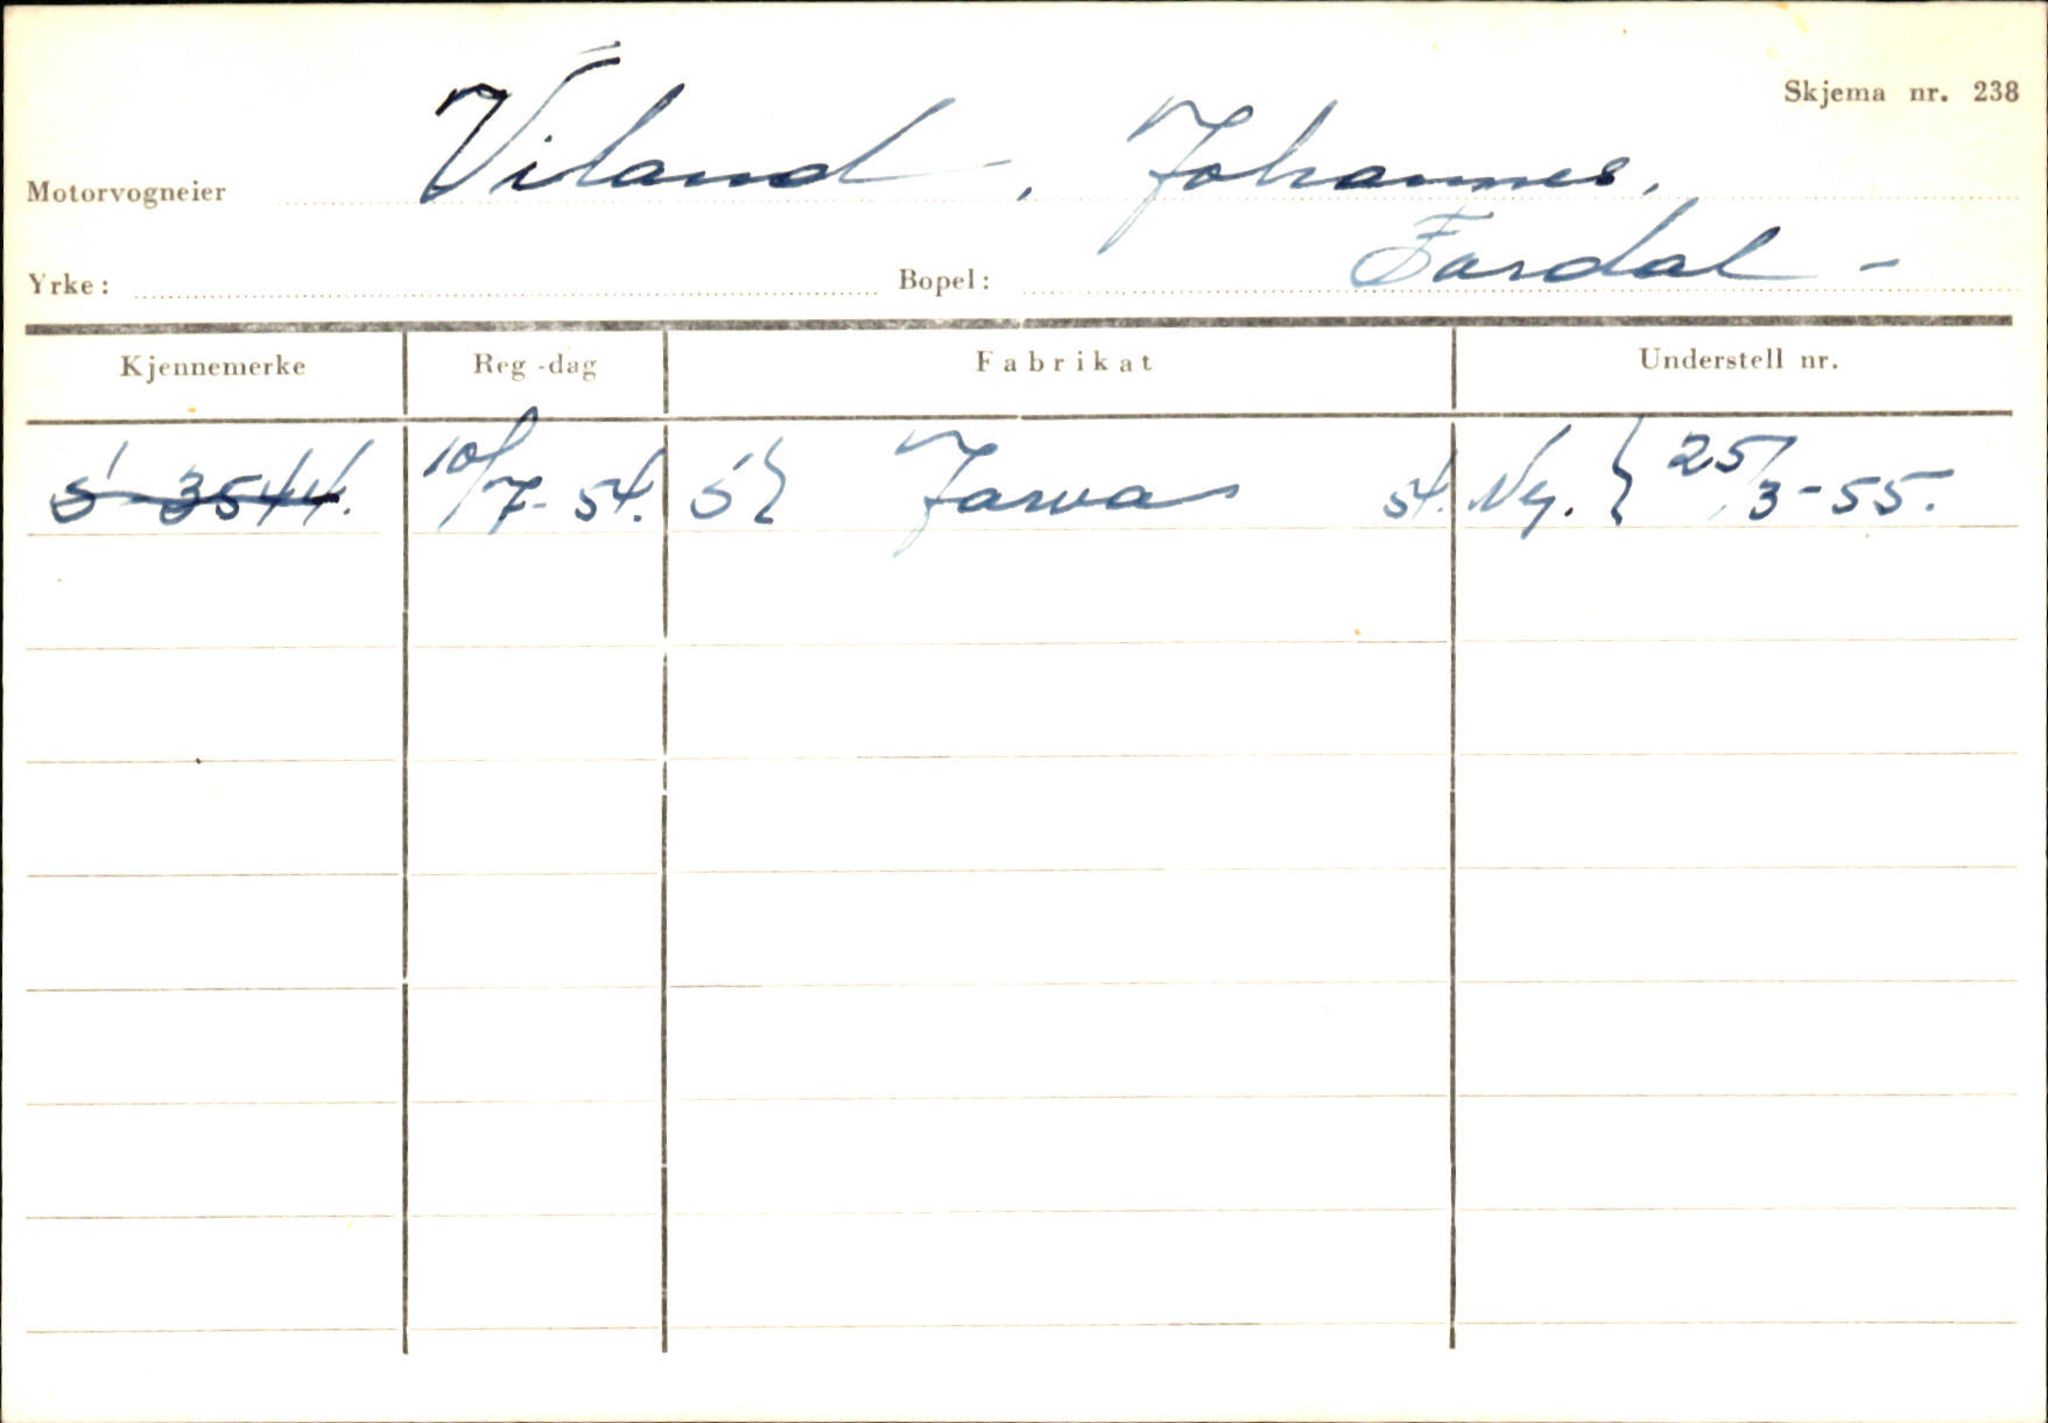 Skjema nr. 238
Motorvogneier Viland, Johannes.
Yrke: Bopel: Fardal -
Kjennemerke Reg-dag Fabrikat Understell nr.
S-3544. 10/7-54. S} Jawa 54. Ny. } 25/3-55.